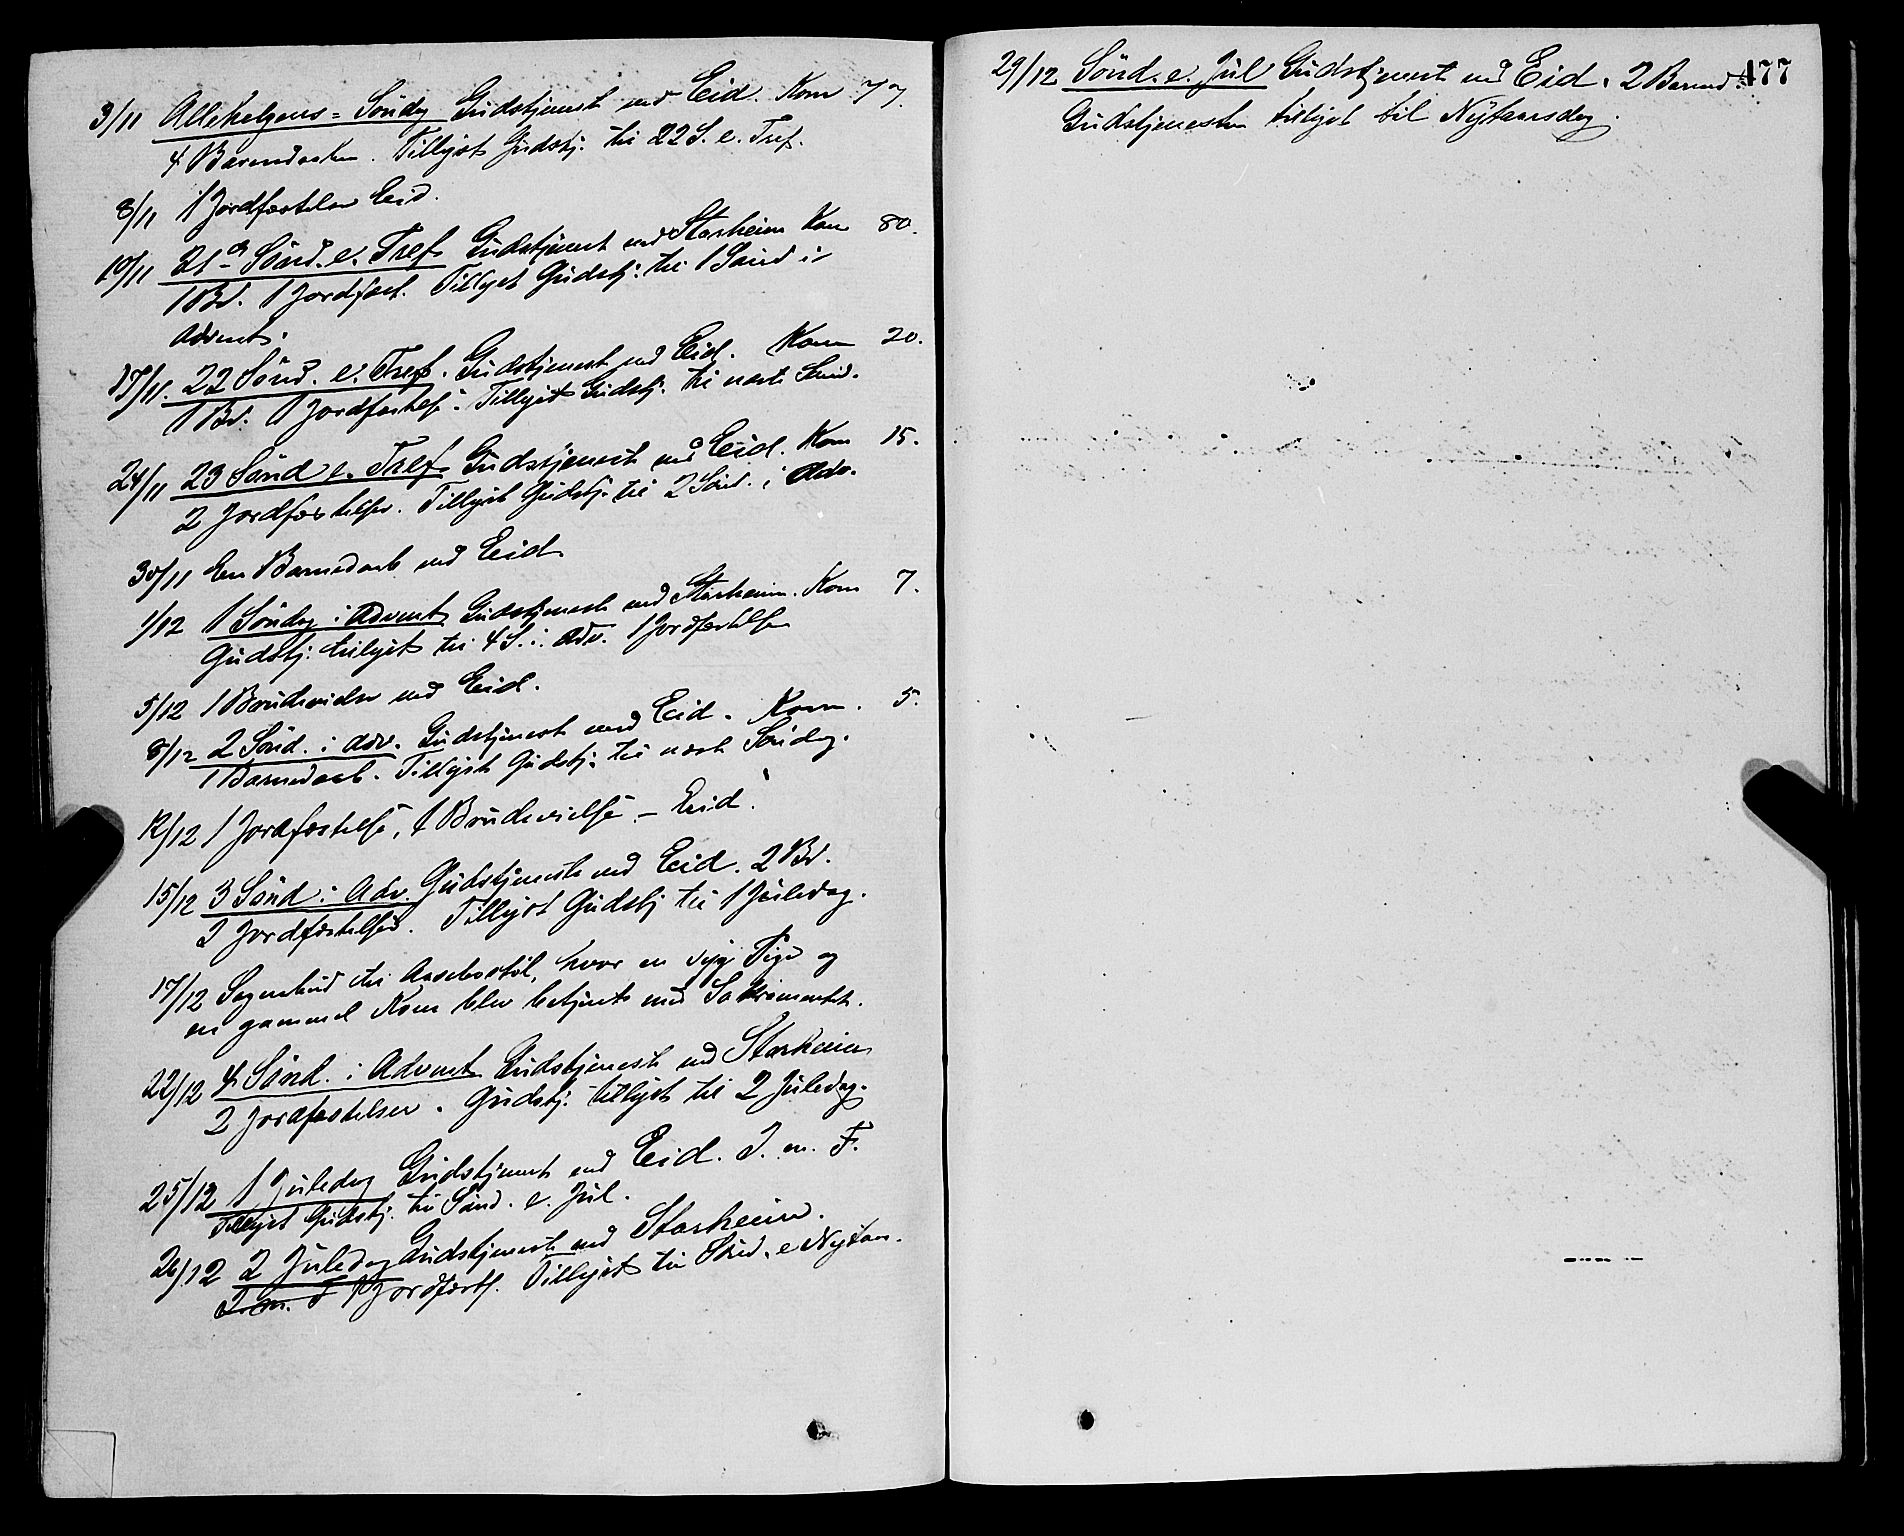 3/11 Allehelgens=Søndag Gudstjenest ved Eid. Kom 77.
4 Barnedaaben. Tillyst Gudstj. til 22 S. e. Tref.
8/11 1 Jordfæstelse Eid.
10/11 21de Sønd. e. Tref. Gudstjenest ved Starheim Kom 80.
1 Bd. 1 Jordfæst. Tillyst Gudstj. til 1 Sønd i
Advent.
17/11. 22 Sønd. e. Tref. Gudstjenest ved Eid. Kom 20.
1 Bd. 1 Jordfæstelse. Tillyst Gudstj. til næste Sønd.
24/11 23 Sønd e. Tref. Gudstjenest ved Eid. Kom 15.
2 Jordfæstelser. Tillyst Gudstj. til 2 Sønd. i Adv.
30/11 En Barnedaab ved Eid
1/12 1 Søndag i Advent Gudstjenest ved Starheim. Kom 7.
Gudstj. tillyst til 4 S. i Adv. 1 Jordfæstelse
5/12 1 Brudevielse ved Eid.
8/12 2 Sønd. i Adv. Gudstjenest ved Eid. Kom. 5.
1 Barnedaab. Tillyst Gudstj. til næste Søndag.
12/12 1 Jordfæstelse, 1 Brudevielse – Eid.
15/12 3 Sønd i Adv. Gudstjeneste ved Eid. 2 Bd.
2 Jordfæstelser. Tillyst Gudstj til 1 Juledag.
17/12 Sognebud til Aasebøstøl, hvor en syg Pige og
en gammel Kone blev betjent med Sakramentet.
22/12 4 Sønd. i Advent Gudstjeneste ved Starheim
2 Jordfæstelser. Gudstj. tillyst til 2 Juledag.
25/12 1 Juledag Gudstjenest ved Eid. I. m. F.
Tillyst Gudstj. til Sønd. e. Jul.
26/12 2 Juledag Gudstjeneste ved Starheim.
I. m. F 1 Jordfæst. Tillyst til Sønd. e Nytaar.
29/12 Sønd. e. Jul Gudstjenest ved Eid. 2 Barned. 477
Gudstjenesten tillyst til Nytaarsdag.